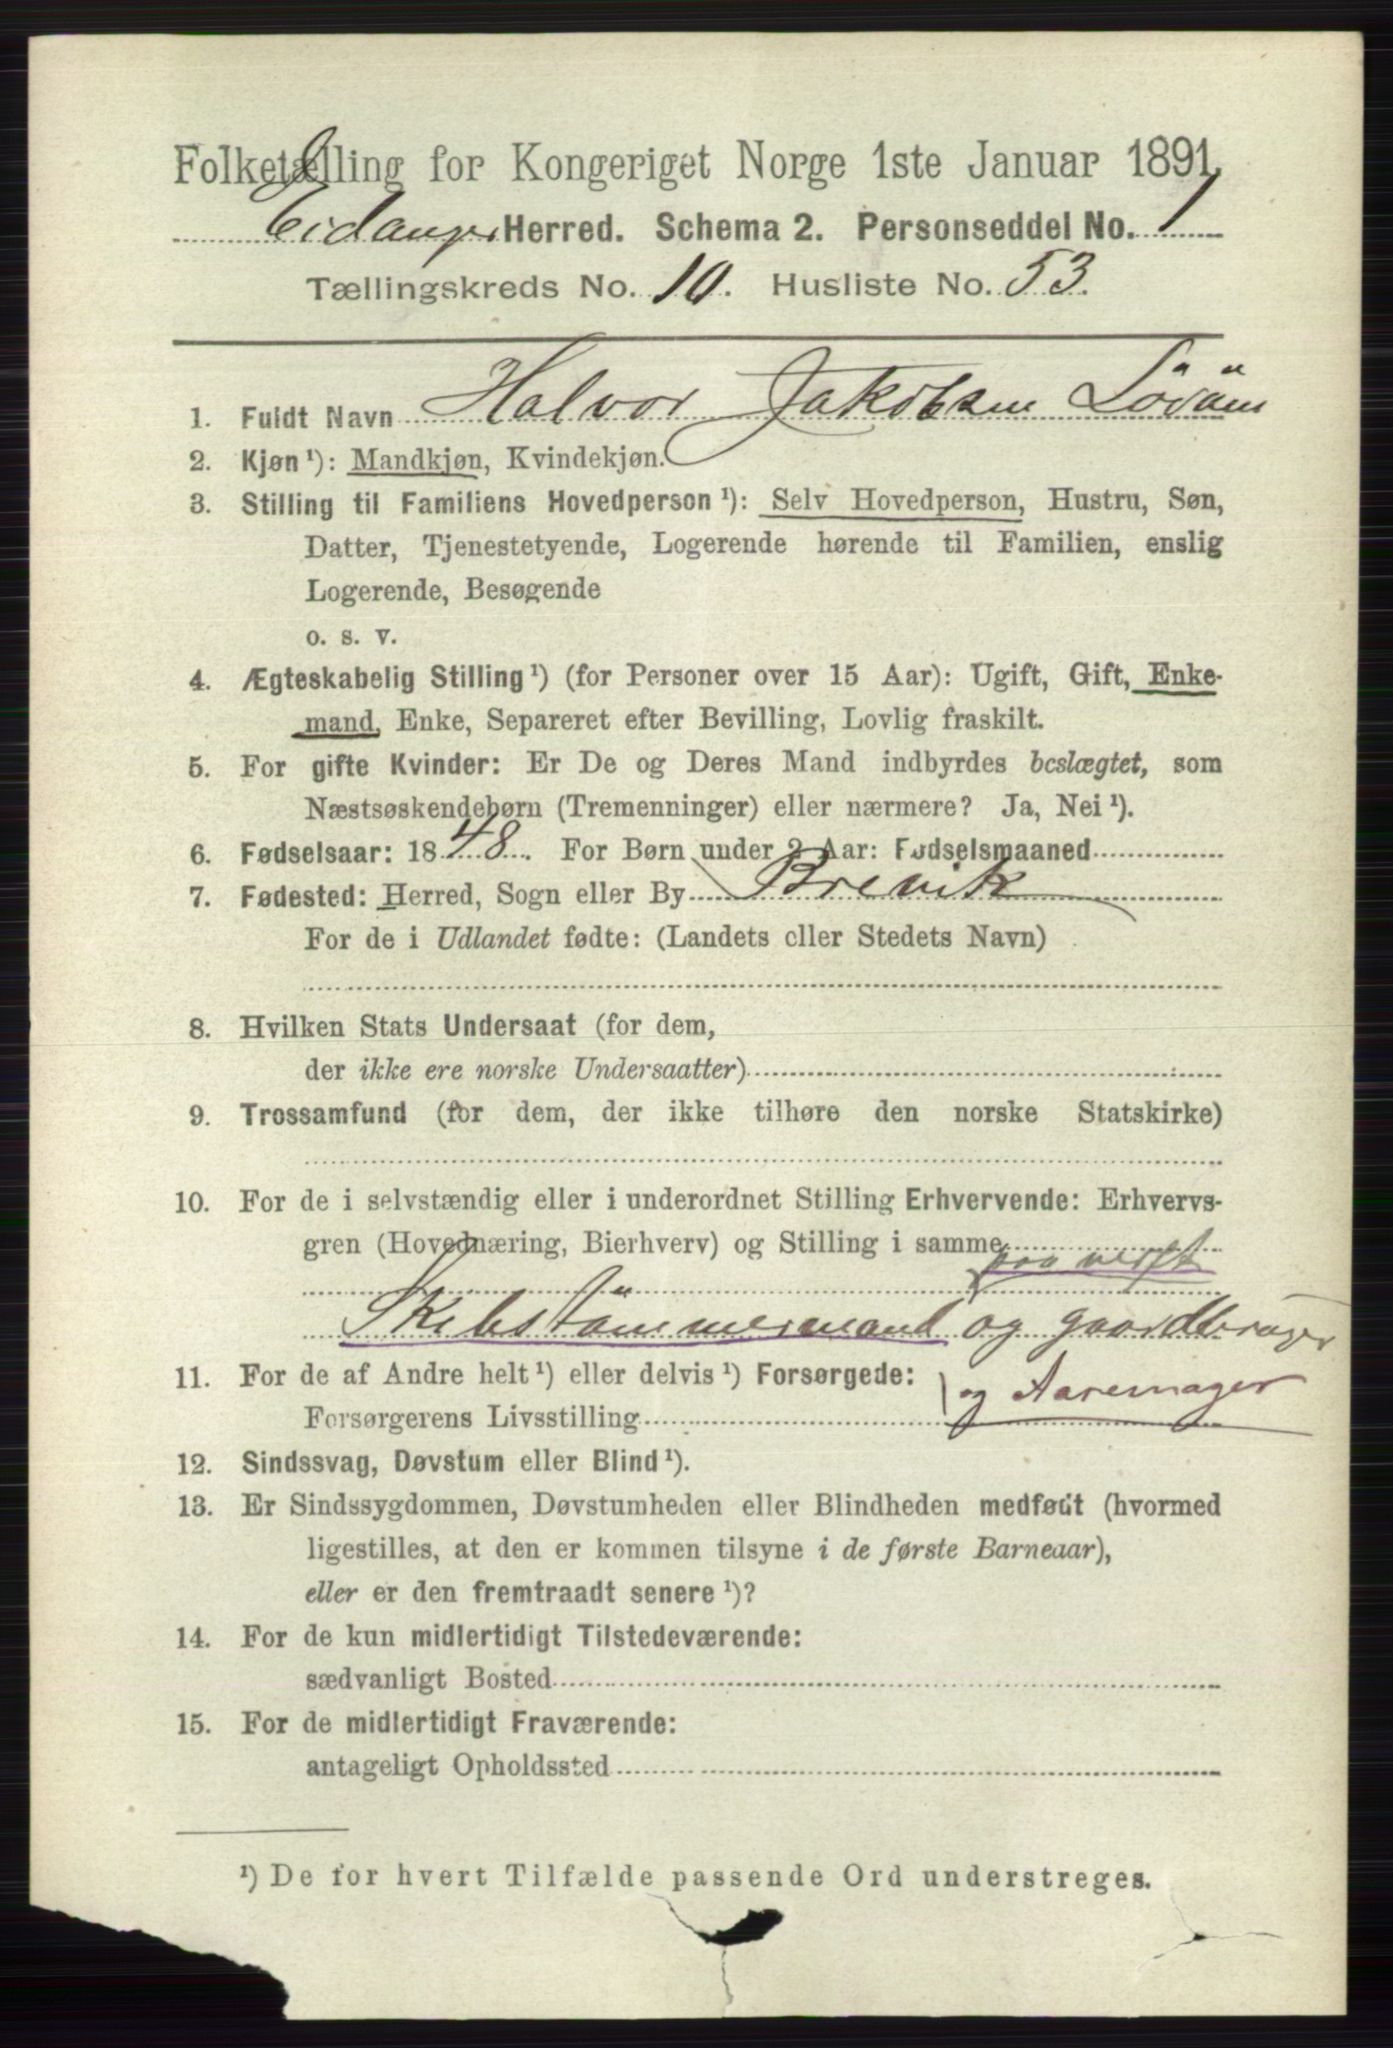 Folketælling for Kongeriget Norge 1ste Januar 1891.
Eidanger Herred. Schema 2. Personseddel No. 1
Tællingskreds No. 10. Husliste No. 53.
1. Fuldt Navn Halvor Jakobsen
2. Kjøn ¹): Mandkjøn, Kvindekjøn.
3. Stilling til Familiens Hovedperson ¹): Selv Hovedperson, Hustru, Søn,
Datter, Tjenestetyende, Logerende hørende til Familien, enslig
Logerende, Besøgende
o. s. v.
4. Ægteskabelig Stilling ¹) (for Personer over 15 Aar): Ugift, Gift, Enke-
mand, Enke, Separeret efter Bevilling, Lovlig fraskilt.
5. For gifte Kvinder: Er De og Deres Mand indbyrdes beslægtet, som
Næstsøskendebørn (Tremenninger) eller nærmere? Ja, Nei ¹).
6. Fødselsaar: 1848. For Børn under 2 Aar: Fødselsmaaned
7. Fødested: Herred, Sogn eller By Brevik
For de i Udlandet fødte: (Landets eller Stedets Navn)
8. Hvilken Stats Undersaat (for dem,
der ikke ere norske Undersaatter)
9. Trossamfund (for dem, der ikke tilhøre den norske Statskirke)
10. For de i selvstændig eller i underordnet Stilling Erhvervende: Erhvervs-
gren (Hovednæring, Bierhverv) og Stilling i samme
paa verft
Skibstömmermand og gaardbruger
11. For de af Andre helt ¹) eller delvis ¹) Forsørgede:
og Aaremager
Forsørgerens Livsstilling
12. Sindssvag, Døvstum eller Blind ¹).
13. Er Sindssygdommen, Døvstumheden eller Blindheden medfødt (hvormed
ligestilles, at den er kommen tilsyne i de første Barneaar),
eller er den fremtraadt senere ¹)?
14. For de kun midlertidigt Tilstedeværende:
sædvanligt Bosted
15. For de midlertidigt Fraværende:
antageligt Opholdssted
¹) De for hvert Tilfælde passende Ord understreges.